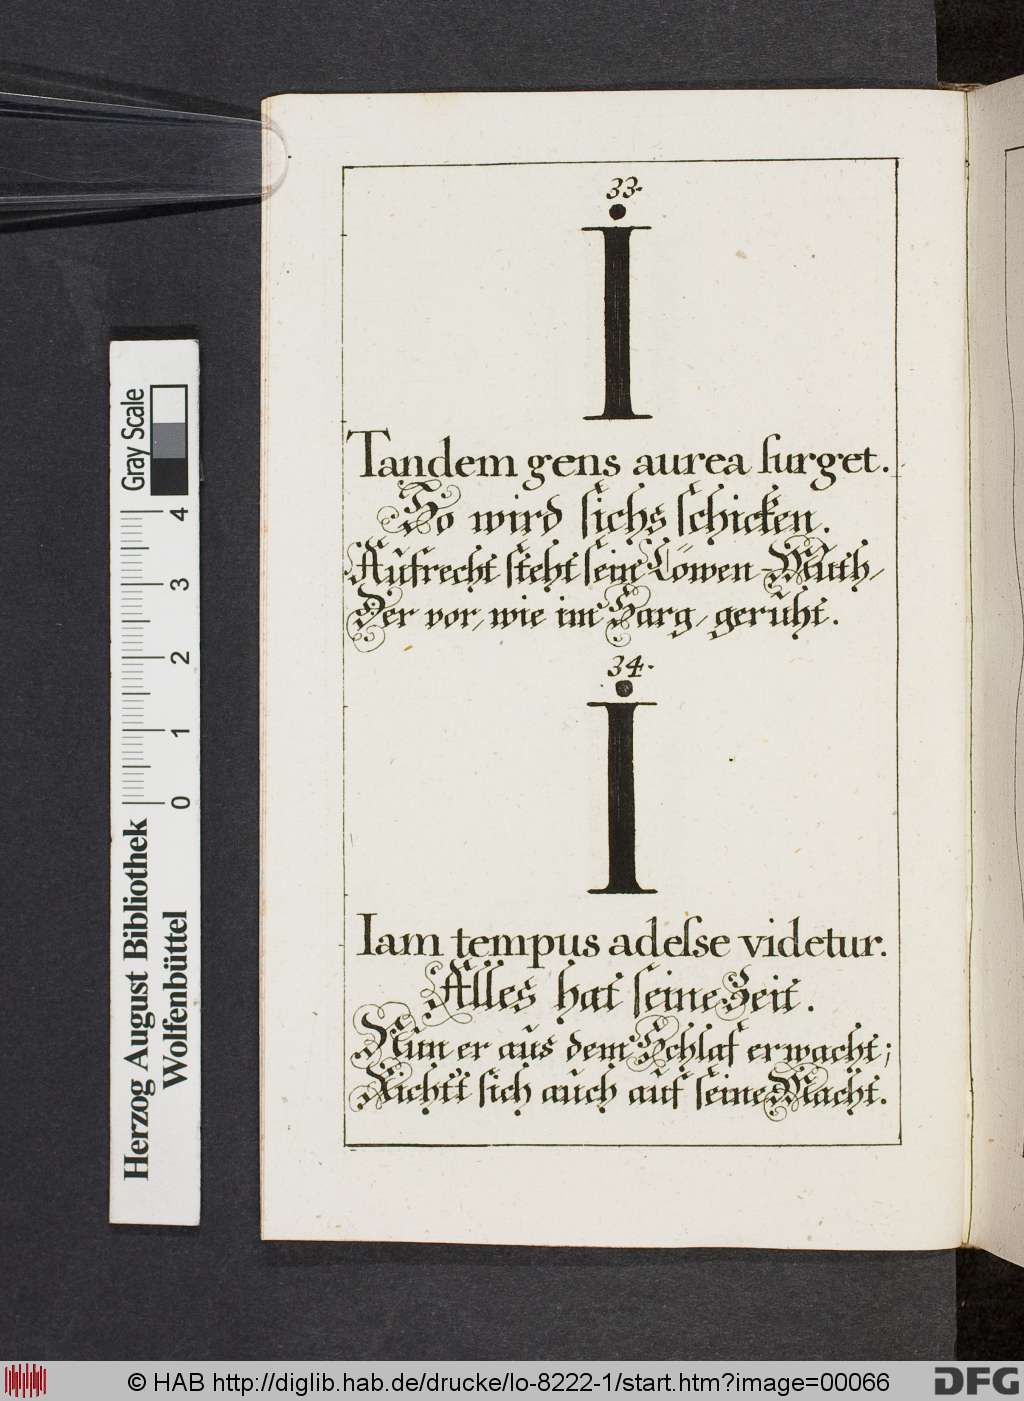 33.
I
Tandem gens aurea ſurget.
So wird ſichs ſchicken.
Aufrecht ſteht ſein Löwen-Muth,
Der vor, wie im Sarg, geruht.
34.
I
Iam tempus adeſse videtur.
Alles hat ſeine Zeit.
Nun er aus dem Schlaf erwacht;
Richt't ſich auch auf ſeine Macht.
Gray Scale
4
3
2
1
0
Herzog August Bibliothek
Wolfenbüttel
© HAB http://diglib.hab.de/drucke/lo-8222-1/start.htm?image=00066
DFG